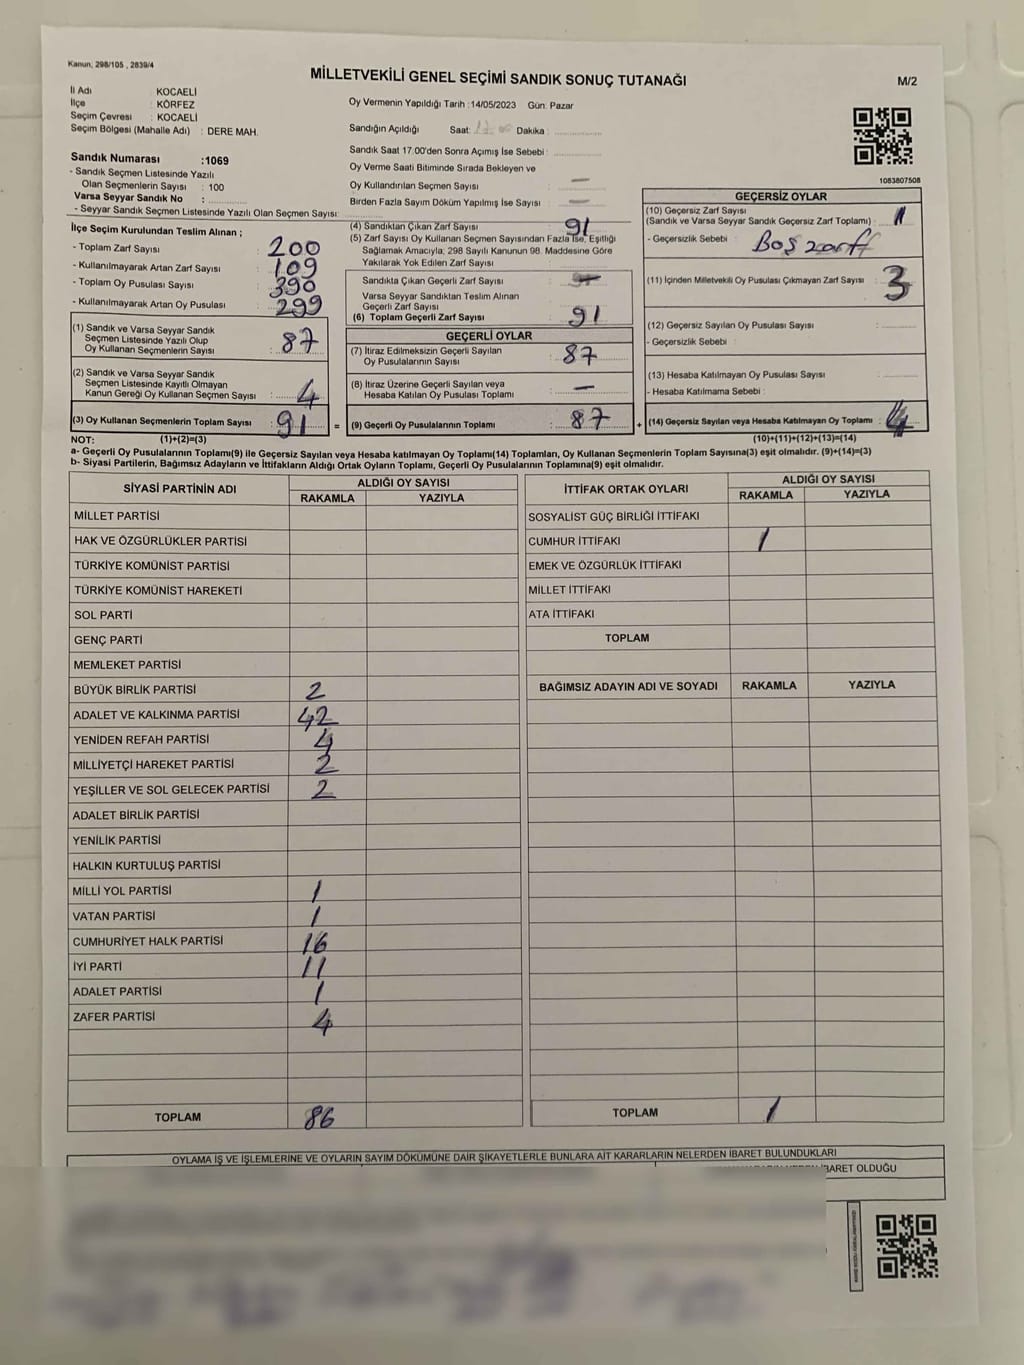 Kanun, 298/105 , 2839/4
MİLLETVEKİLİ GENEL SEÇİMİ SANDIK SONUÇ TUTANAĞI
M/2
İl Adı : KOCAELİ
İlçe : KÖRFEZ
Seçim Çevresi : KOCAELİ
Seçim Bölgesi (Mahalle Adı) : DERE MAH.
Sandık Numarası :1069
- Sandık Seçmen Listesinde Yazılı
Olan Seçmenlerin Sayısı : 100
Varsa Seyyar Sandık No :
- Seyyar Sandık Seçmen Listesinde Yazılı Olan Seçmen Sayısı:
Oy Vermenin Yapıldığı Tarih :14/05/2023 Gün: Pazar
Sandığın Açıldığı Saat: Dakika :
Sandık Saat 17:00'den Sonra Açımış İse Sebebi :
Oy Verme Saati Bitiminde Sırada Bekleyen ve
Oy Kullandırılan Seçmen Sayısı : —
Birden Fazla Sayım Döküm Yapılmış İse Sayısı : —
1083807508
İlçe Seçim Kurulundan Teslim Alınan ;
- Toplam Zarf Sayısı : 200
- Kullanılmayarak Artan Zarf Sayısı : 109
- Toplam Oy Pusulası Sayısı : 390
- Kullanılmayarak Artan Oy Pusulası : 299
(1) Sandık ve Varsa Seyyar Sandık
Seçmen Listesinde Yazılı Olup
Oy Kullanan Seçmenlerin Sayısı : 87
(2) Sandık ve Varsa Seyyar Sandık
Seçmen Listesinde Kayıtlı Olmayan
Kanun Gereği Oy Kullanan Seçmen Sayısı : 4
(3) Oy Kullanan Seçmenlerin Toplam Sayısı : 91 =
(4) Sandıktan Çıkan Zarf Sayısı : 91
(5) Zarf Sayısı Oy Kullanan Seçmen Sayısından Fazla İse, Eşitliği
Sağlamak Amacıyla; 298 Sayılı Kanunun 98. Maddesine Göre
Yakılarak Yok Edilen Zarf Sayısı :
Sandıkta Çıkan Geçerli Zarf Sayısı :
Varsa Seyyar Sandıktan Teslim Alınan
Geçerli Zarf Sayısı :
(6) Toplam Geçerli Zarf Sayısı : 91
GEÇERLİ OYLAR
(7) İtiraz Edilmeksizin Geçerli Sayılan
Oy Pusulalarının Sayısı : 87
(8) İtiraz Üzerine Geçerli Sayılan veya
Hesaba Katılan Oy Pusulası Toplamı : —
(9) Geçerli Oy Pusulalarının Toplamı : 87 +
GEÇERSİZ OYLAR
(10) Geçersiz Zarf Sayısı
(Sandık ve Varsa Seyyar Sandık Geçersiz Zarf Toplamı) : 1
- Geçersizlik Sebebi : Boş zarf
(11) İçinden Milletvekili Oy Pusulası Çıkmayan Zarf Sayısı : 3
(12) Geçersiz Sayılan Oy Pusulası Sayısı :
- Geçersizlik Sebebi :
(13) Hesaba Katılmayan Oy Pusulası Sayısı :
- Hesaba Katılmama Sebebi :
(14) Geçersiz Sayılan veya Hesaba Katılmayan Oy Toplamı : 4
NOT: (1)+(2)=(3)
(10)+(11)+(12)+(13)=(14)
a- Geçerli Oy Pusulalarının Toplamı(9) ile Geçersiz Sayılan veya Hesaba katılmayan Oy Toplamı(14) Toplamları, Oy Kullanan Seçmenlerin Toplam Sayısına(3) eşit olmalıdır. (9)+(14)=(3)
b- Siyasi Partilerin, Bağımsız Adayların ve İttifakların Aldığı Ortak Oyların Toplamı, Geçerli Oy Pusulalarının Toplamına(9) eşit olmalıdır.
SİYASİ PARTİNİN ADI ALDIĞI OY SAYISI
RAKAMLA YAZIYLA
MİLLET PARTİSİ
HAK VE ÖZGÜRLÜKLER PARTİSİ
TÜRKİYE KOMÜNİST PARTİSİ
TÜRKİYE KOMÜNİST HAREKETİ
SOL PARTİ
GENÇ PARTİ
MEMLEKET PARTİSİ
BÜYÜK BİRLİK PARTİSİ 2
ADALET VE KALKINMA PARTİSİ 42
YENİDEN REFAH PARTİSİ 4
MİLLİYETÇİ HAREKET PARTİSİ 2
YEŞİLLER VE SOL GELECEK PARTİSİ 2
ADALET BİRLİK PARTİSİ
YENİLİK PARTİSİ
HALKIN KURTULUŞ PARTİSİ
MİLLİ YOL PARTİSİ 1
VATAN PARTİSİ 1
CUMHURİYET HALK PARTİSİ 16
İYİ PARTİ 11
ADALET PARTİSİ 1
ZAFER PARTİSİ 4
TOPLAM 86
İTTİFAK ORTAK OYLARI ALDIĞI OY SAYISI
RAKAMLA YAZIYLA
SOSYALİST GÜÇ BİRLİĞİ İTTİFAKI
CUMHUR İTTİFAKI 1
EMEK VE ÖZGÜRLÜK İTTİFAKI
MİLLET İTTİFAKI
ATA İTTİFAKI
TOPLAM
BAĞIMSIZ ADAYIN ADI VE SOYADI RAKAMLA YAZIYLA
TOPLAM 1
OYLAMA İŞ VE İŞLEMLERİNE VE OYLARIN SAYIM DÖKÜMÜNE DAİR ŞİKAYETLERLE BUNLARA AİT KARARLARIN NELERDEN İBARET BULUNDUKLARI
İBARET OLDUĞU